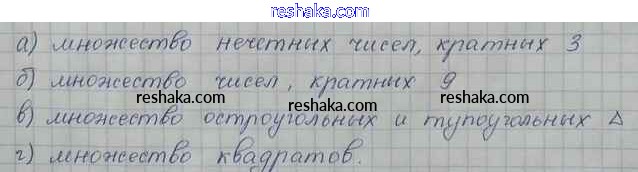 reshaka.com
а) множество нечетных чисел, кратных 3
б) множество чисел, кратных 9
reshaka.com reshaka.com reshaka.com
в) множество остроугольных и тупоугольных Δ
г) множество квадратов.
reshaka.com